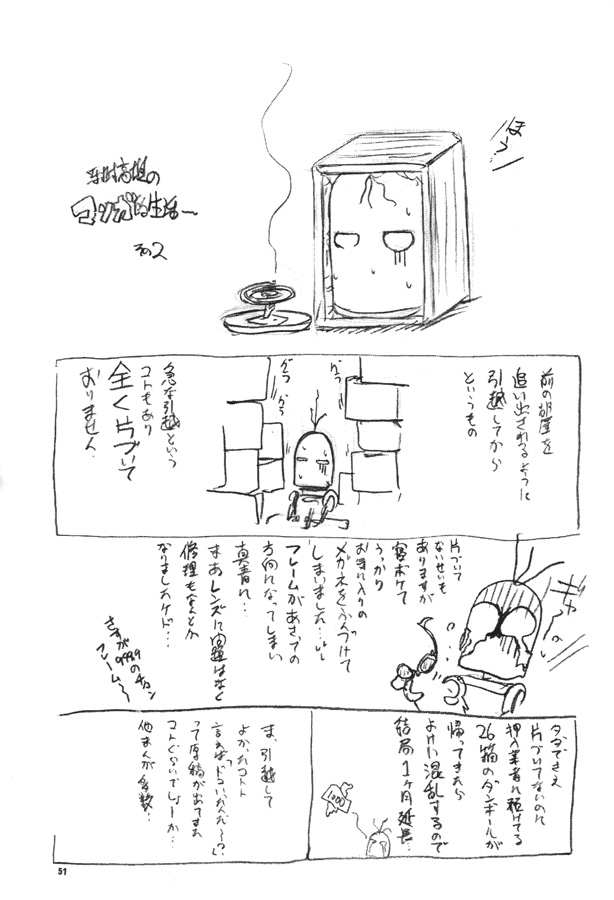 マンガ的生活〜
その2
ほう
前の部屋を
追い出されるように
引越してから
というもの
ガッ
ガッ
急な引越という
コトもあり
全く片づいて
おりません
片づいて
ないせいも
ありますが
寝ボケて
うっかり
お気に入りの
メガネをふんづけて
しまいました…
フレームがあさっての
方向になってしまい
真青に…
まぁレンズに問題はなく
修理もなんとか
なりましたケド…
さすが
999.9のチタン
フレーム〜
タダでさえ
片づいてないのに
押入業者に預けてる
26箱のダンボールが
帰ってきたら
よけい混乱するので
結局1ヶ月延長…
ま、引越して
よかったコト
言えば
って原稿があてる
コトぐらいでしょーか…
他まんが多数…
51